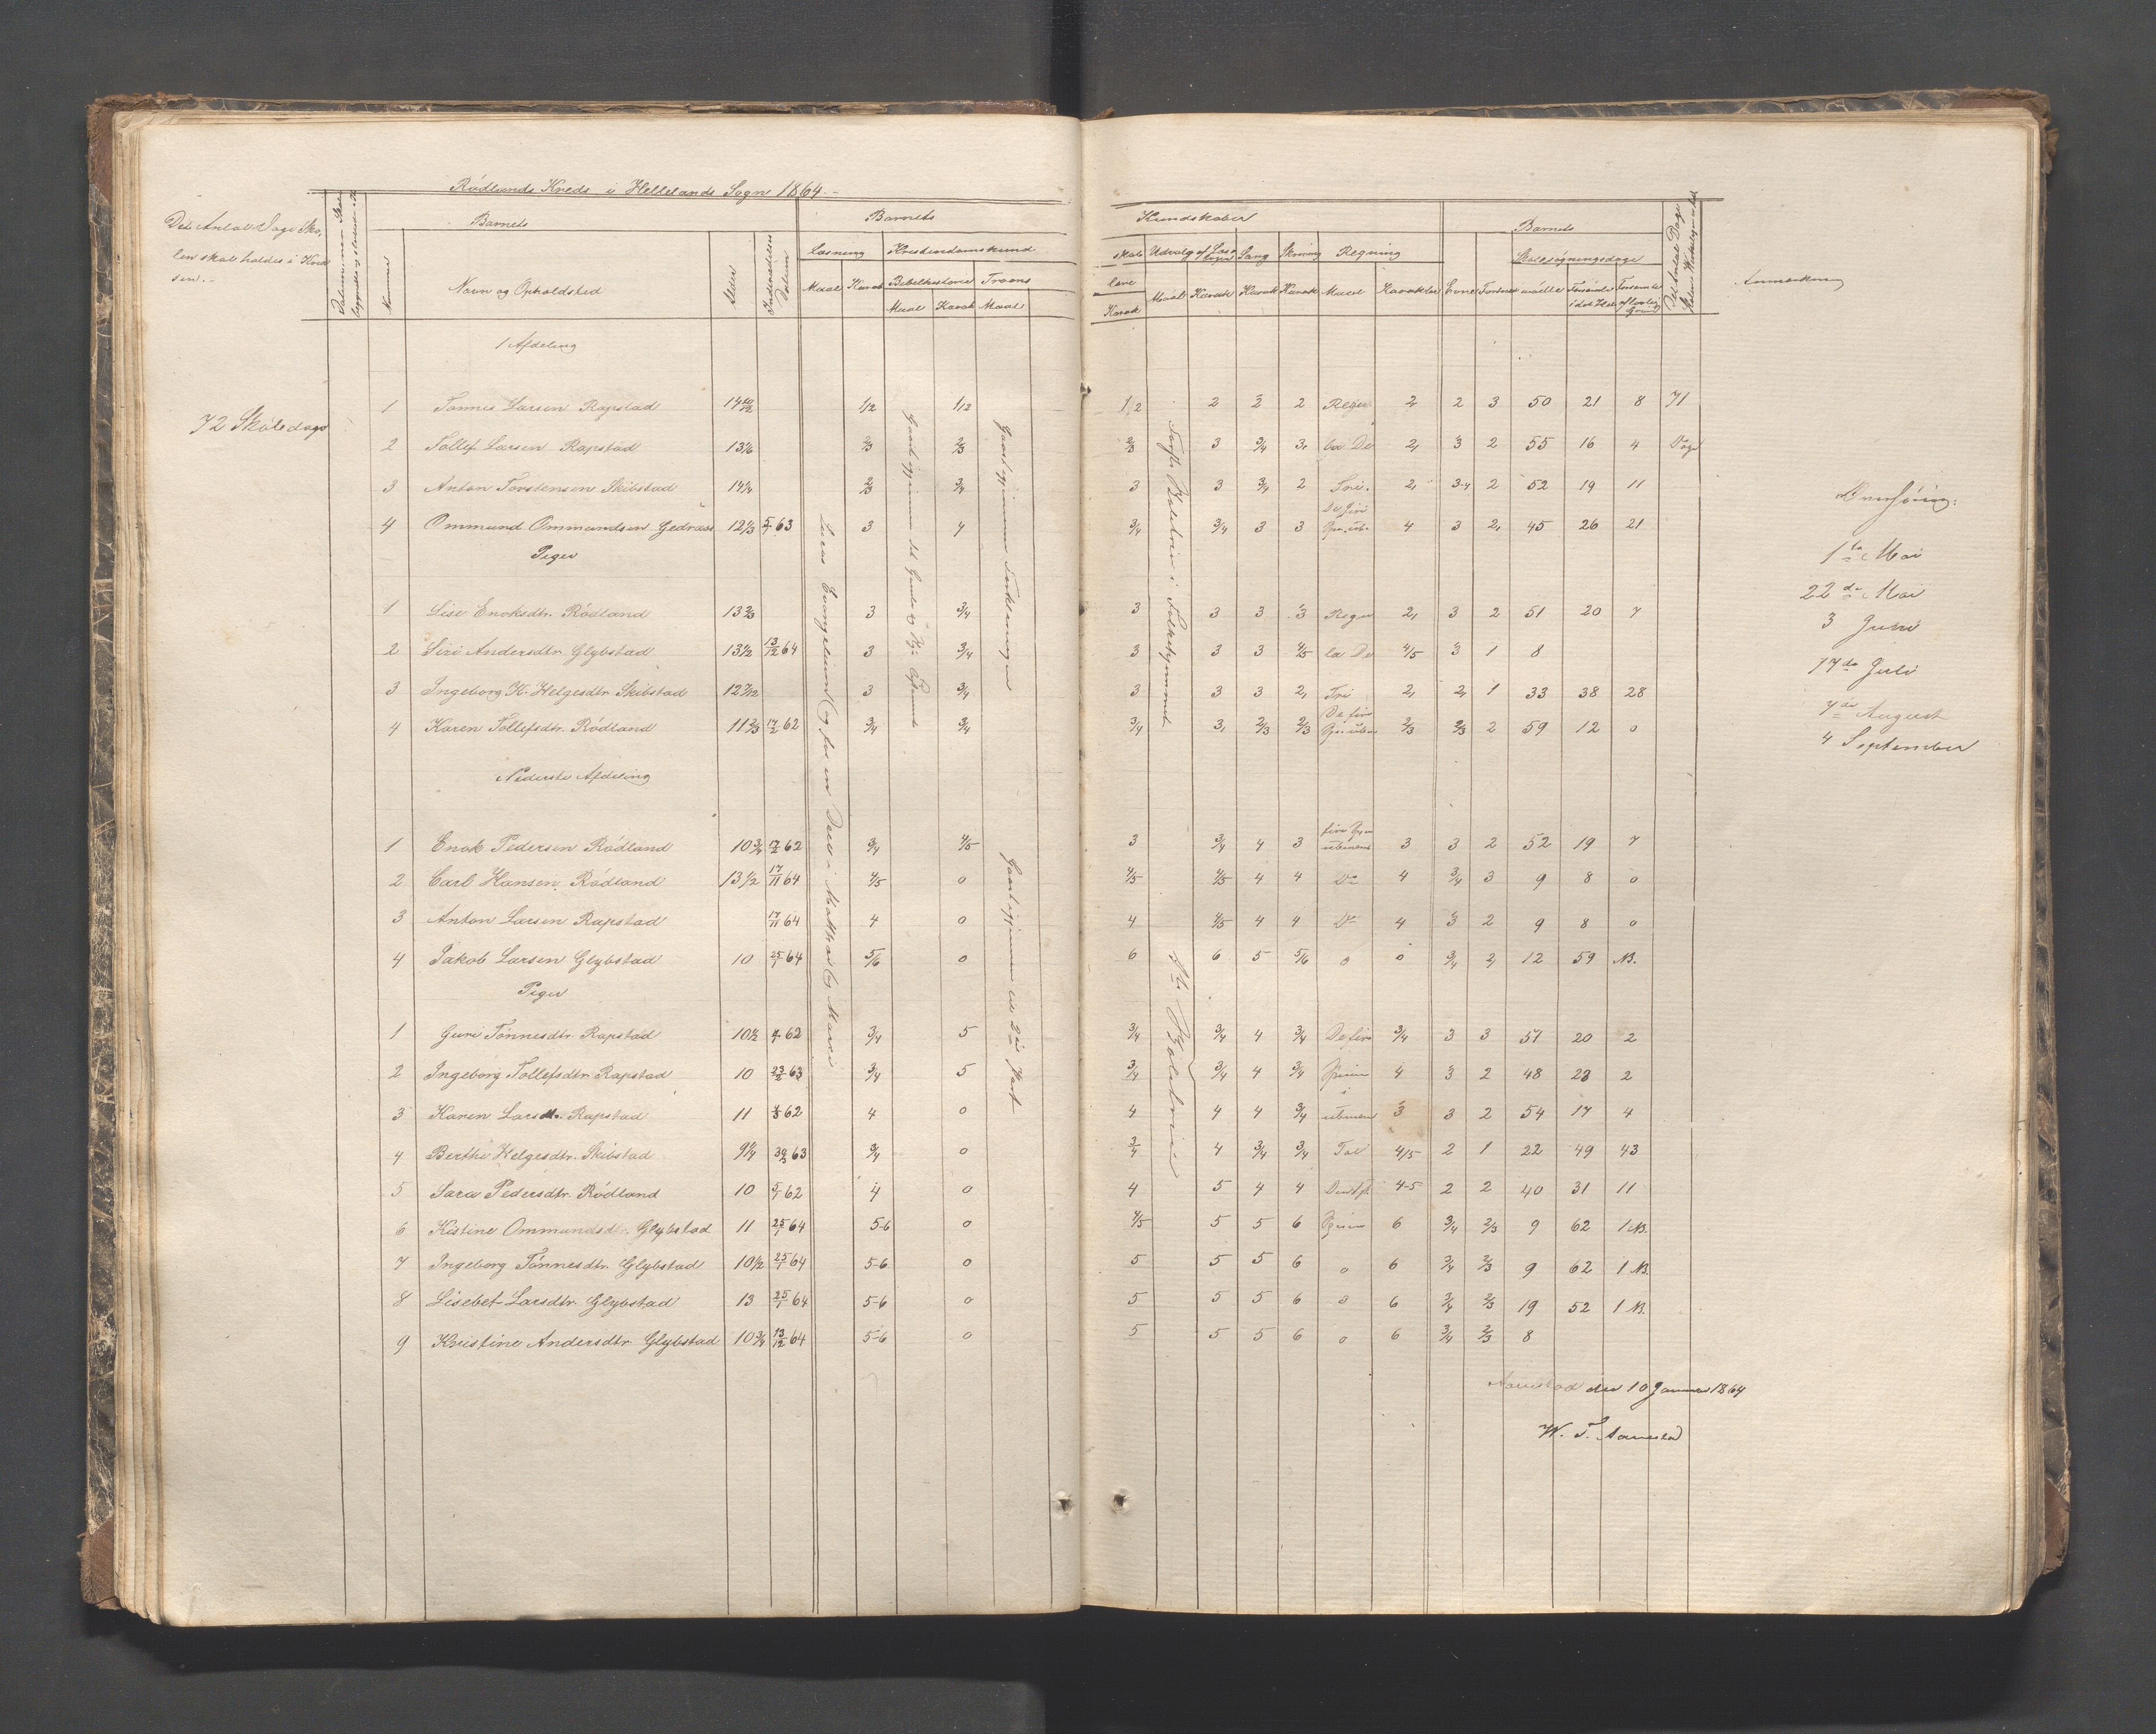 Rødlands Kreds i Hellelands Sogn 1864.
Det Antal Dage Sko-
len skal holdes i Kred-
sen.
Barnets
Barnets
Nummer
Navn og Opholdsted
Alder
Indtrædelses Datum
Læsning
Kristendomskund
Maal
Karak
Bibelhistorie
Troens
Maal
Karak
Maal
Kundskaber
Barnets
skab
Udvalg af Læsebogen
Sang
Skrivning
Regning
Skolesøgningsdage
lære
Karak
Maal
Karak
Karak
Karak
Maal
Karakter
Evne
Forhold
mødte
forsømte i det Hele
forsømte af lovlig Grund
Det Antal Dage Skolen Virkelig er holdt
Anmærkning
1 Afdeling
72 Skoledage
1 Tønnes Larsen Rapstad 14 10/12 1/2 1/2 1/2 2 2 2 Regu- 2 2 3 50 21 8 71
2 Tollef Larsen Rapstad 13 1/6 2/3 2/3 2/3 3 3/4 3 la De 2 3 2 55 16 4 Dage
3 Anton Torstensen Skibstad 14 1/4 2/3 3/4 3 3 3/4 2 Tri. 2 3-4 2 52 19 11
4 Ommund Ommundsen Gedraas 12 1/3 5/7 63 3 4 3/4 3/4 3 3 De fire Spe. ube. 4 3 2 45 26 21
Piger
1 Lise Enoksdtr. Rødland 13 2/3 3 3/4 3 3 3 3 Regu 2 3 2 51 20 7
2 Siri Andersdtr. Glybstad 13 1/2 13/12 64 3 3/4 3 3 3 4/5 la De 4/5 3 1 8
3 Ingeborg K. Helgesdtr. Skibstad 12 7/12 3 3/4 3 3 3 2 Tri 2 2 1 33 38 28
4 Karen Tollefsdtr. Rødland 11 2/3 17/2 62 3/4 3/4 3/4 3 2/3 2/3 De fire Spe. uben 2/3 2/3 2 59 12 0
Nederste Afdeling
1 Enok Pedersen Rødland 10 3/4 17/2 62 3/4 4/5 3 3/4 4 3 fire Spe ubenævnt 3 3 2 52 19 7
2 Carl Hansen Rødland 13 1/2 17/11 64 4/5 0 4/5 4/5 4 4 Do 4 3/4 3 9 8 0
3 Anton Larsen Rapstad 17/11 64 4 0 4 4/5 4 4 Do 4 3 2 9 8 0
4 Jakob Larsen Glybstad 10 25/1 64 5/6 0 6 6 5 5/6 0 0 3/4 2 12 59 NB.
Piger
1 Guri Tønnesdtr. Rapstad 10 1/2 62 3/4 5 3/4 3/4 4 3/4 De fire 3/4 3 3 51 20 2
2 Ingeborg Tollefsdtr. Rapstad 10 23/2 63 3/4 5 3/4 3/4 4 3/4 Spesier 4 3 2 48 23 2
3 Karen Larsdtr. Rapstad 11 62 4 0 4 4 4 3/4 i ubenæv 3 3 2 54 17 4
4 Berthe Helgesdtr. Skibstad 9 1/4 63 3/4 0 3/4 4 3/4 3/4 Tal 4/5 2 1 22 49 43
5 Sara Pedersdtr. Rødland 10 5/1 62 4 0 4 5 4 4 4-5 2 2 40 31 11
6 Kistine Ommundsdtr. Glybstad 11 25/1 64 5-6 0 4/5 5 5 6 Spesier 6 3/4 2/3 9 62 1 NB.
7 Ingeborg Tønnesdtr. Glybstad 10 1/2 25/1 64 5-6 0 5 5 5 6 0 6 3/4 2/3 9 62 1 NB.
8 Lisebet Larsdtr. Glybstad 13 25/1 64 5-6 0 5 5 5 6 0 6 3/4 2/3 19 52 1 NB.
9 Kristine Andersdtr. Glybstad 10 3/4 13/12 64 5-6 0 5 5 5 6 0 6 3/4 2/3 8
Lucas Evangelium og for en Deel i Mattheus og Marci
Gaaet igjennem det Gamle og Nye Testamente
Gaaet igjennem Forklaringen
Gaaet igjennem til 2den Part
i Folkestammet
1ste Mai
22de Mai
3 Juni
17de Juli
7de August
4 September
Aarrestad den 10 Januar 1864
W. T. Aarrestad